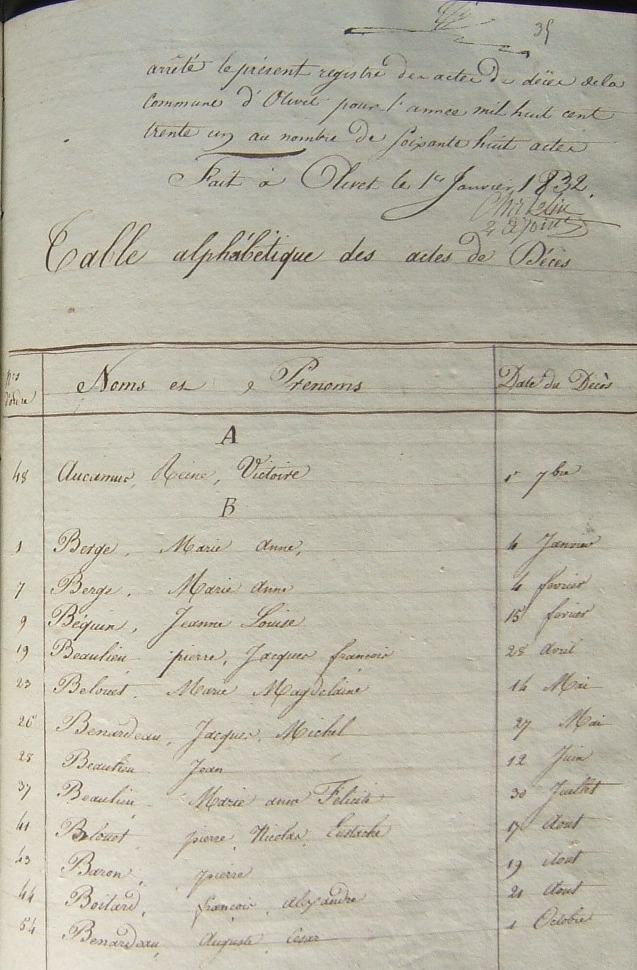 35
arrêté le présent registre des actes de décès de la
commune d'Olivet pour l'annee mil huit cent
trente un au nombre de soixante huit actes
Fait à Olivet le 1er Janvier 1832.
adjoint
Table alphabétique des actes de Décès
Nos d'ordre Noms et Prenoms Date du Décès
A
48 Aucamus, Reine, Victoire 5 7bre
B
1 Berge, Marie Anne, 4 Janvier
7 Berge, Marie Anne 4 fevrier
9 Béquin, Jeanne Louise 15 fevrier
19 Beaulieu pierre, Jacques françois 28 Avril
23 Belouet, Marie Magdelaine 14 Mai
26 Benardeau, Jacques, Michel 27 Mai
28 Beaulieu Jean 12 Juin
37 Beaulieu Marie anne Felicité 30 Juillet
41 Belouet, pierre, Nicolas, Eustache 17 Aout
43 Baron, pierre 19 Aout
44 Boitard, françois, alexandre 21 Aout
54 Benardeau, Auguste Cesar 1 Octobre